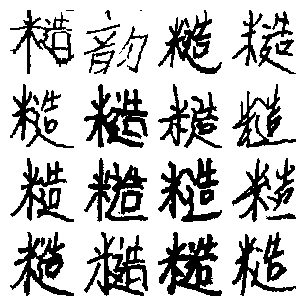 糙韵糙糙
糙糙糙糙
糙糙糙糙
糙糙糙糙